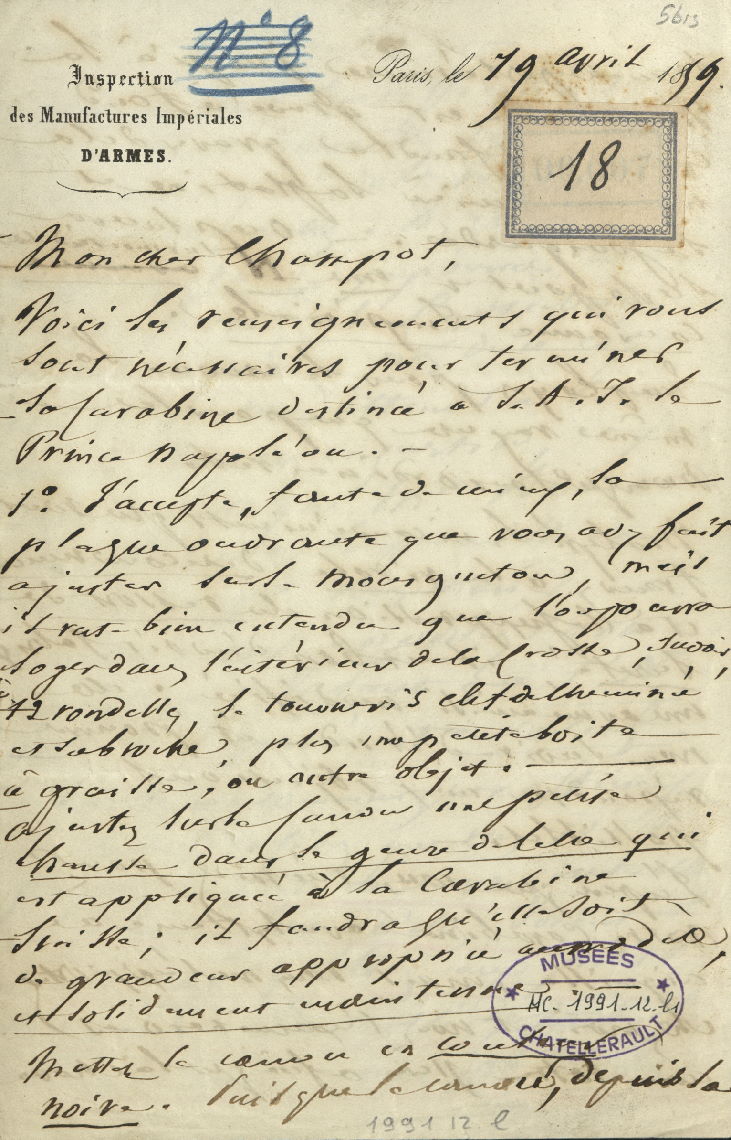 5bis
N° 8
Inspection
des Manufactures Impériales
D'ARMES.
Paris, le 19 avril 1859.
18
Mon cher Chassepot,
Voici les renseignements qui vous
sont nécessaires pour terminer
la Carabine destinée à S. A. I. le
Prince Napoléon. —
1° J'accepte, faute de mieux, la
plaque ouvrante que vous avez fait
ajuster sur le mousqueton, mais
il est bien entendu que l'on pourra
loger dans l'intérieur de la Crosse, savoir
12 rondelles, le tournevis clef de cheminée
et sa broche, plus une petite boite
à graisse, ou autre objet. —
ajustez sur le Canon une petite
hausse dans le genre de celle qui
est appliquée à la Carabine
Suisse; il faudra qu'elle soit
de grandeur appropriée
et solidement maintenue
MUSÉES
HC. 1991-12-l1
CHATELLERAULT
Mettez le canon en couleur
noire. Puisque le canon, depuis la
1991 12 l